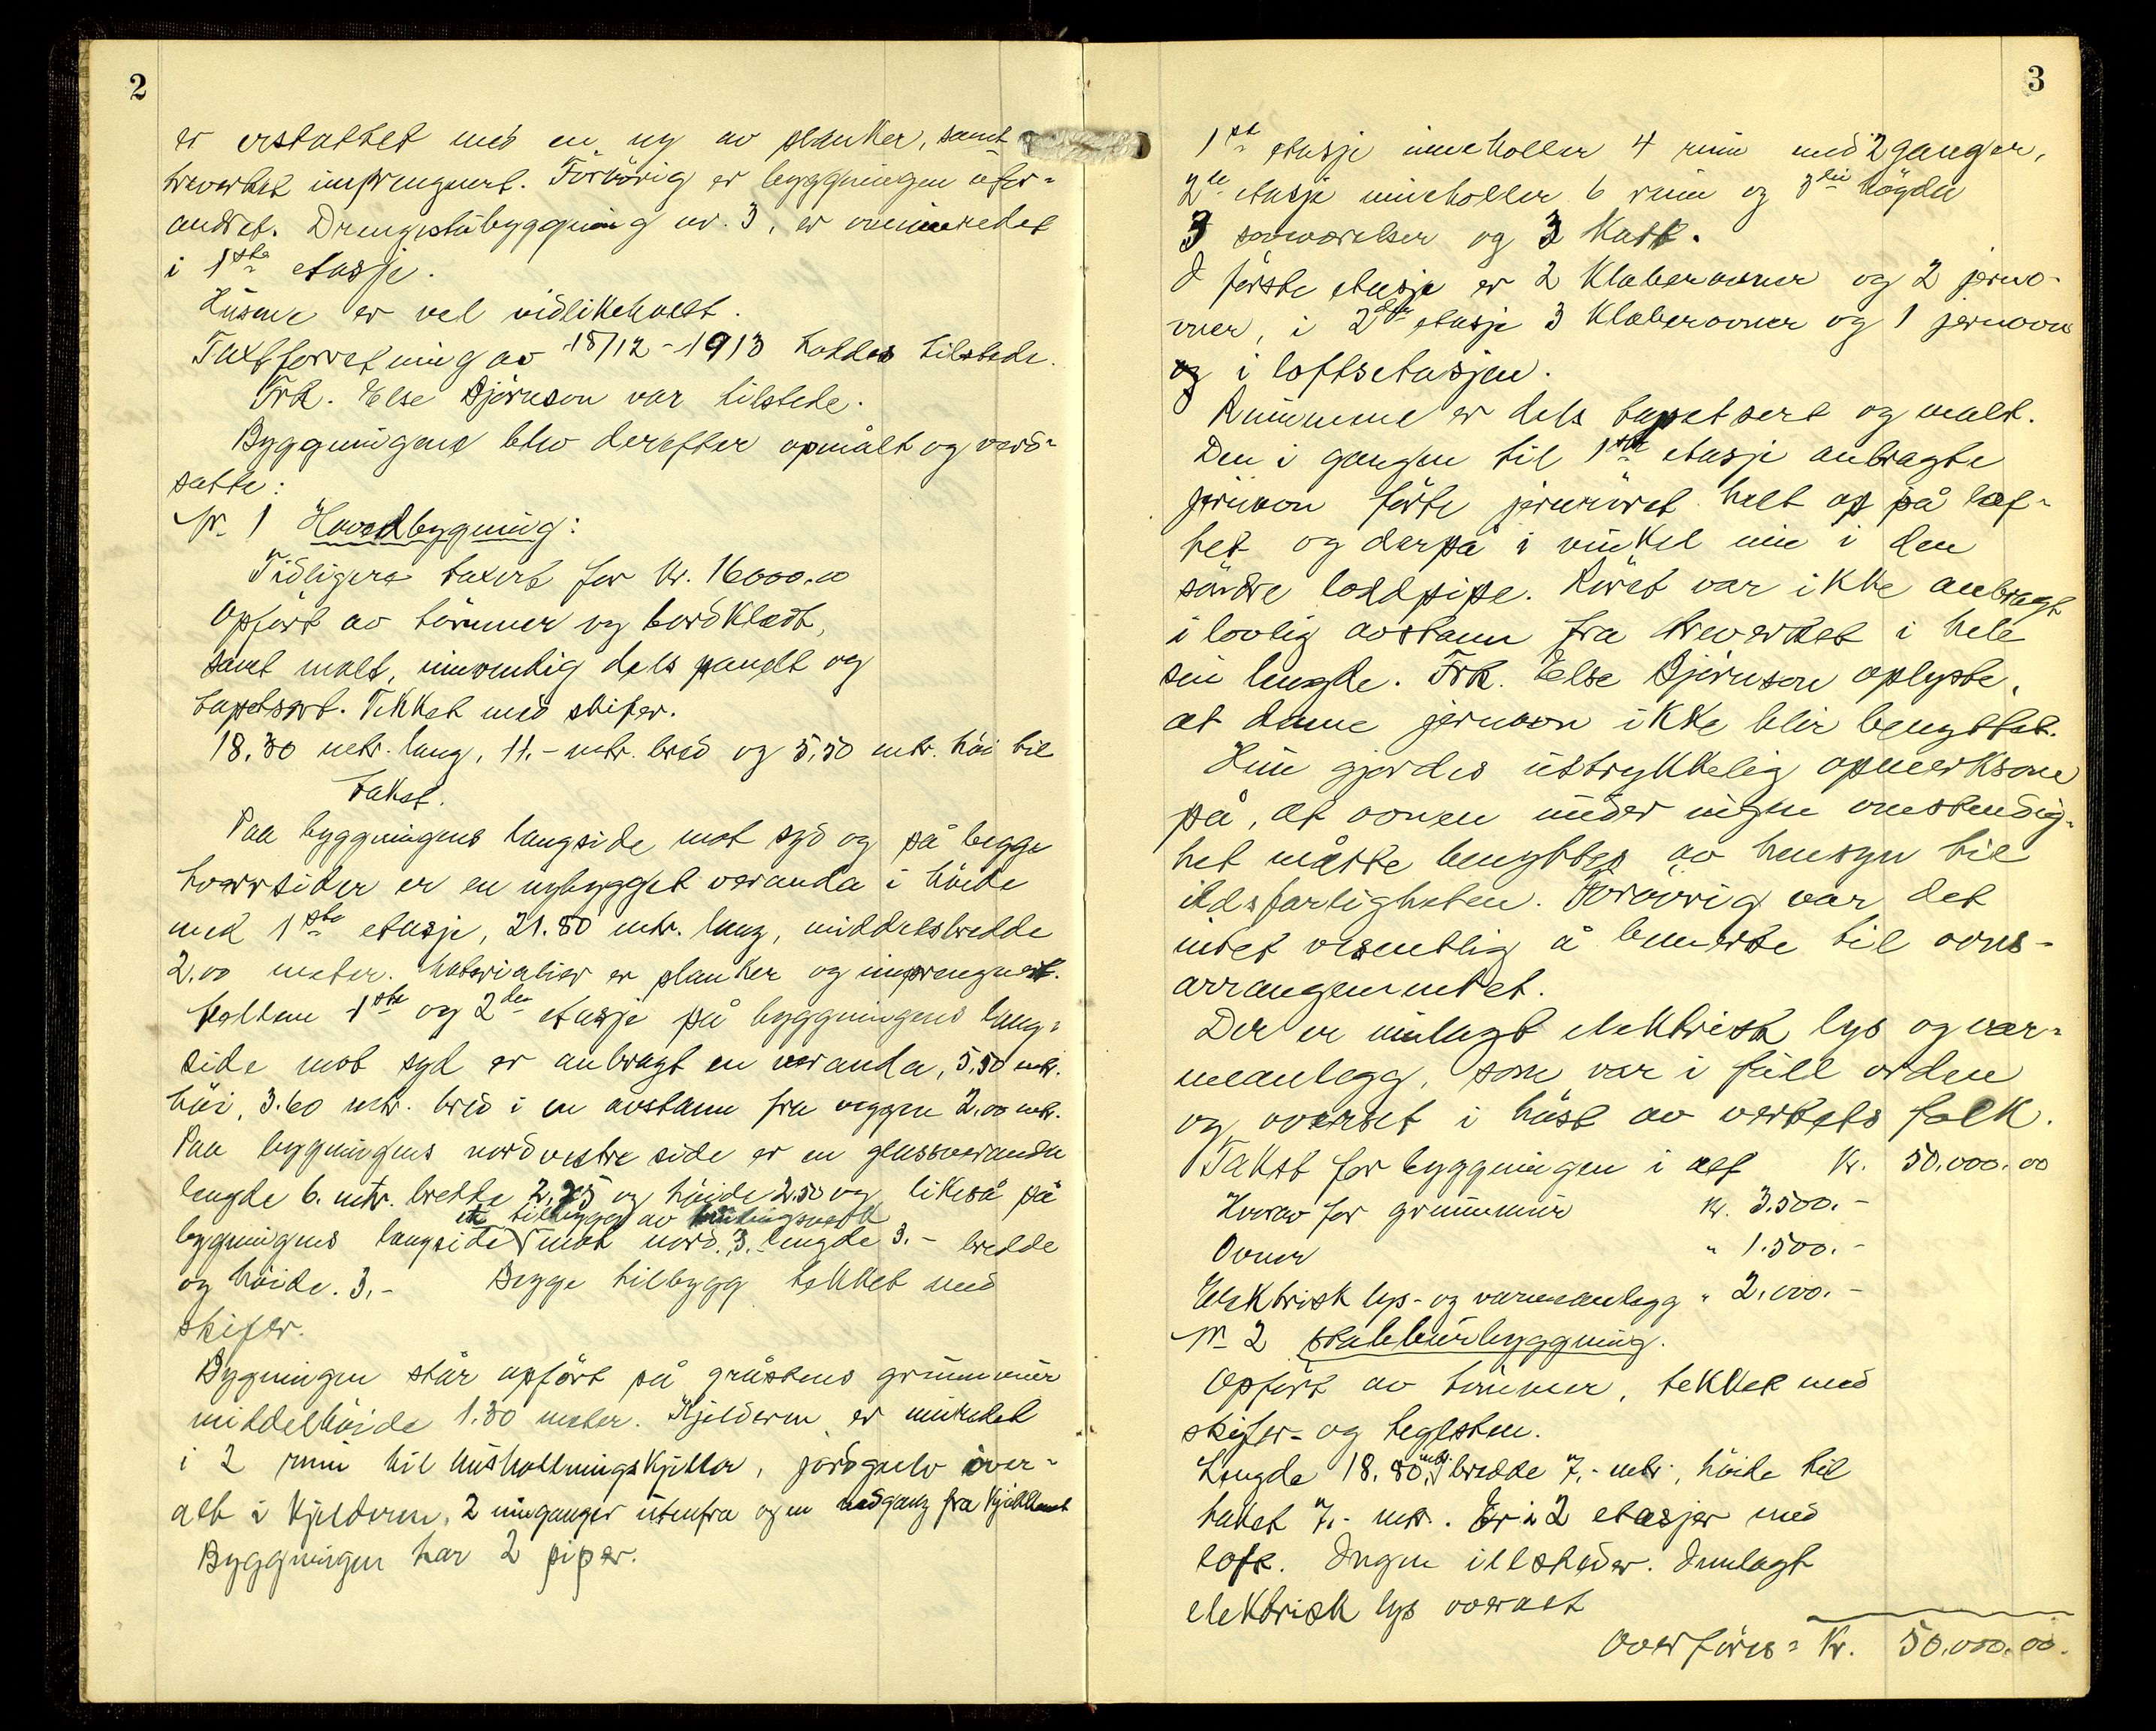 2
er erstattet med en ny av planker, samt
treverket imprengnert. Forövrig er byggningen ufor-
andret. Drengestubyggning nr. 3, er ominnredet
i 1ste etasje.
Husene er vel vidlikeholdt.
Taxtforretning av 18/12-1913 holdes tilstede.
Frk. Else Bjørnson var tilstede.
Byggningene blev derefter opmålt og verd-
satte:
Nr 1 Hovedbygning:
Tidligere taxert for kr. 16000.00
Opført av tömmer og bordklædt,
samt malt, innvendig dels panelt og
tapetsert. Tekket med skifer.
18.30 mtr. lang, 11.- mtr. bred og 5,50 mtr. höi til
takst.
Paa byggningens langside mot syd og på begge
tverrsider er en nybygget veranda i höide
med 1ste etasje, 21.80 mtr. lang, middelsbredde
2.00 meter. Materialier er planker og imprengnert.
Mellem 1ste og 2den etasje på byggningens lang-
side mot syd er anbragt en veranda, 5,50 mtr.
höi, 3.60 mtr. bred i en avstann fra veggen 2.00 mtr.
Paa bygningens nordvestre side er en glassveranda
lengde 6. mtr. bredde 2,75 og höide 2.50 og likeså på
et tilbygg av bindingsverk
bygningens langside mot nord. 3. lengde 3.- bredde
og höide. 3.- Begge tilbygg tekket med
skifer.
Bygningen står opfört på gråstens grunnmur
middelhöide 1.30 meter. Kjelderen er innredet
i 2 rum til husholtningskjeller, jordgulv över-
alt i kjelderen, 2 innganger utenfra og en nedgang fra kjökkenet
Byggningen har 2 piper.
3
1ste etasje inneholler 4 rum med 2 ganger,
2de etasje inneholler 6 rum og 3die högde
3 soveværelser og 3 kott.
I förste etasje er 2 kleberovner og 2 jerno-
vner, i 2den etasje 3 kleberovner og 1 jernovn
og i loftsetasjen.
Rummene er dels tapetsert og malt.
Den i gangen til 1ste etasje anbragte
jernovn förte jernröret helt op på lof-
tet og derpå i vinkel inn i den
söndre loddpipe. Röret var ikke anbragt
i lovlig avstann fra treverket i hele
sin lengde. Frk. Else Bjørnson oplyste,
at denne jernovn ikke blir benyttet.
Hun gjordes uttrykkelig opmerksom
på, at ovnen under ingen omstendig-
het måtte benyttes av hensyn til
ildsfarligheten. Forövrig var det
intet vesentlig å bemerke til ovns-
arrangementet.
Der er innlagt elektrisk lys og var-
meanlegg, som var i full orden
og overset i höst av verkets folk.
Takst for byggningen i alt Kr. 50.000.00
Herav for grunnmur Kr. 3.500.-
Ovner " 1.500.-
Elektrisk lys- og varmeanlegg " 2.000.-
Nr 2 Stabbursbyggning.
Opfört av tömmer, tekket med
skifer- og teglsten.
Lengde 18.80 mtr. bredde 7,- mtr., höide til
taket 7,- mtr. Er i 2 etasjer med
loft. Ingen illsteder. Innlagt
elektrisk lys overalt
Overföres: Kr. 50.000.00.